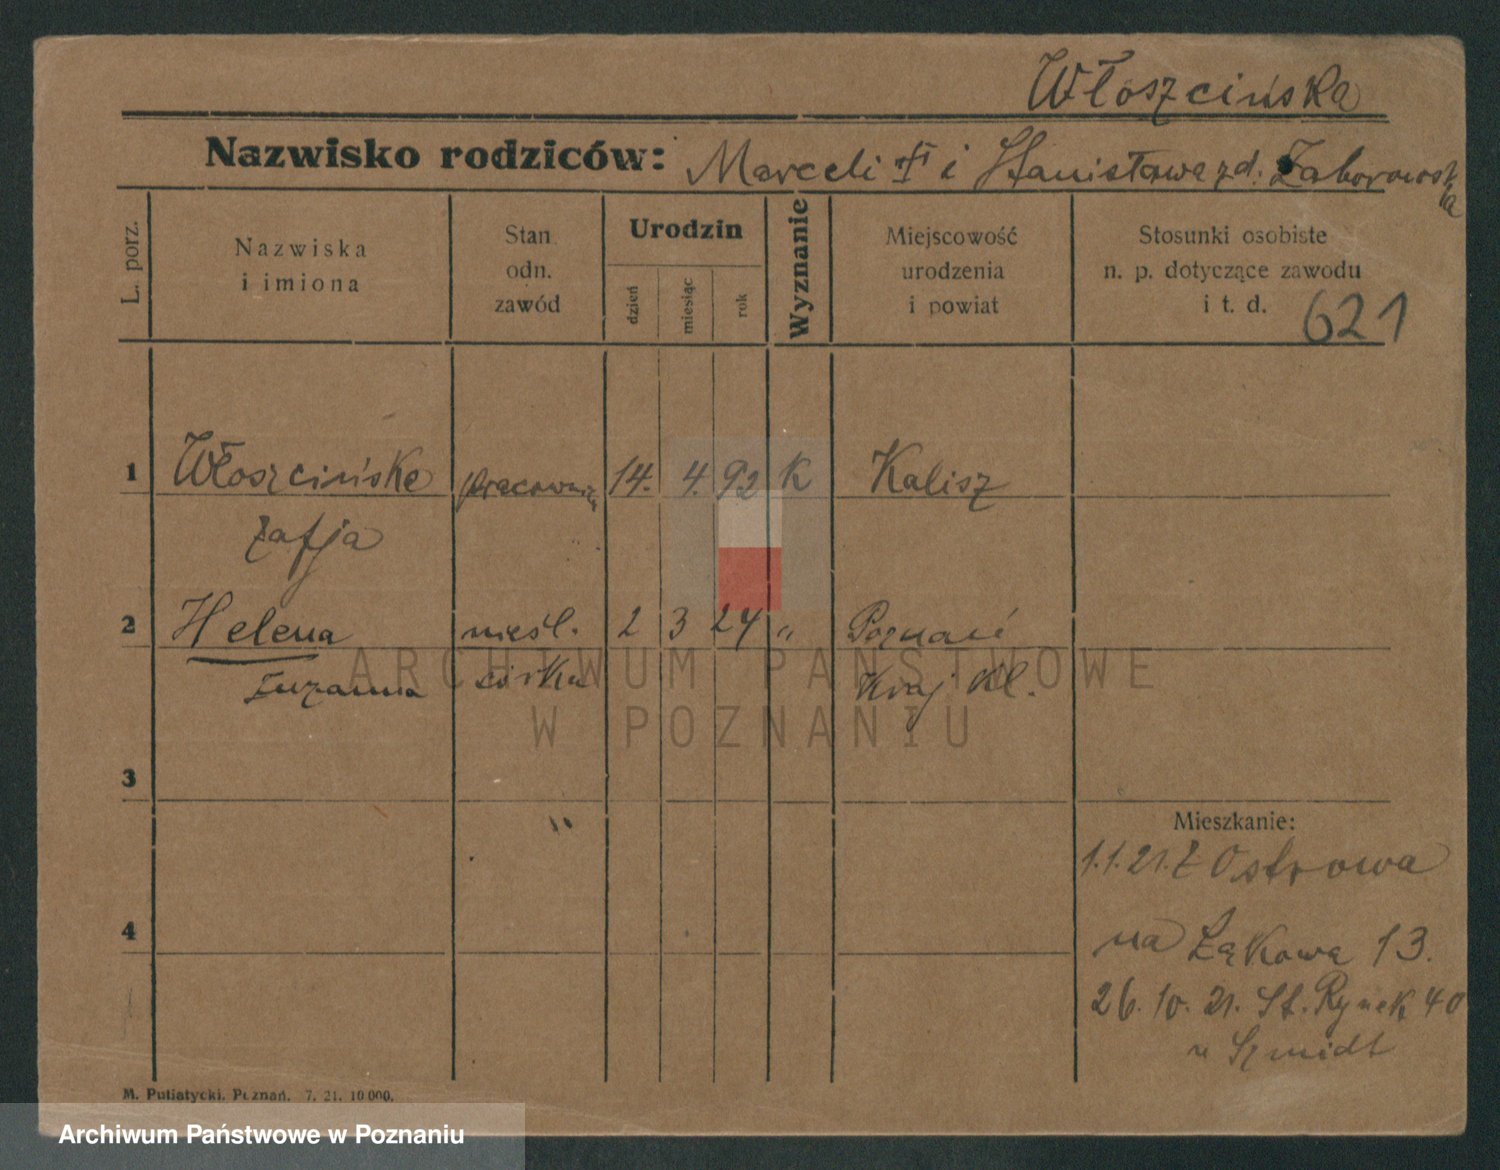 Włoszcińska
Nazwisko rodziców: Marceli † i Stanisława zd. Zaborowska
L. porz.
Nazwiska
i imiona
Stan
odn.
zawód
Urodzin
dzień
miesiąc
rok
Wyznanie
Miejscowość
urodzenia
i powiat
Stosunki osobiste
n. p. dotyczące zawodu
i t. d.
621
1 Włoszcińska 14. 4. 92 k Kalisz
Zofja
2 Helena nieśl. 2 3 24 " Poznań
Zuzanna córka Kraj
3
Mieszkanie:
1.1.21. z Ostrowa
4
na Łąkowa 13.
26.10.21. St. Rynek 40
u Szmidt
M. Putiatycki, Poznań. 7. 21. 10 000.
ARCHIWUM PAŃSTWOWE
W POZNANIU
Archiwum Państwowe w Poznaniu